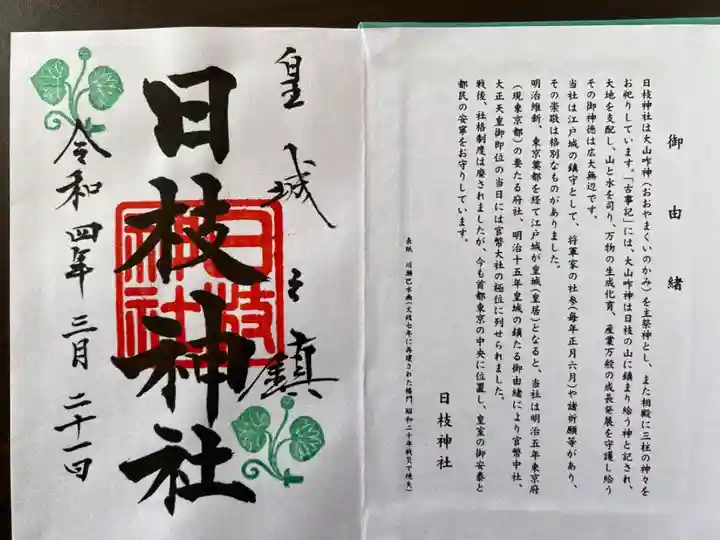 御由緒
日枝神社は大山咋神(おおやまくいのかみ)を主祭神とし、また相殿に三柱の神々を
お祀りしています。「古事記」には、大山咋神は日枝の山に鎮まり給う神と記され、
大地を支配し、山と水を司り、万物の生成化育、産業万般の成長発展を守護し給う
その御神徳は広大無辺です。
当社は江戸城の鎮守として、将軍家の社参(毎年正月六月)や諸祈願等があり、
その崇敬は格別なものがありました。
明治維新、東京奠都を経て江戸城が皇城(皇居)となると、当社は明治五年東京府
(現東京都)の要たる府社、明治十五年皇城の鎮たる御由緒により官幣中社、
大正天皇御即位の当日には官幣大社の極位に列せられました。
戦後、社格制度は廃されましたが、今も首都東京の中央に位置し、皇室の御安泰と
都民の安寧をお守りしています。
表紙 川瀬巴水画(文政七年に再建された楼門、昭和二十年戦災で焼失)
日枝神社
皇城之鎮
日枝神社
日枝神社
令和四年三月二十一日